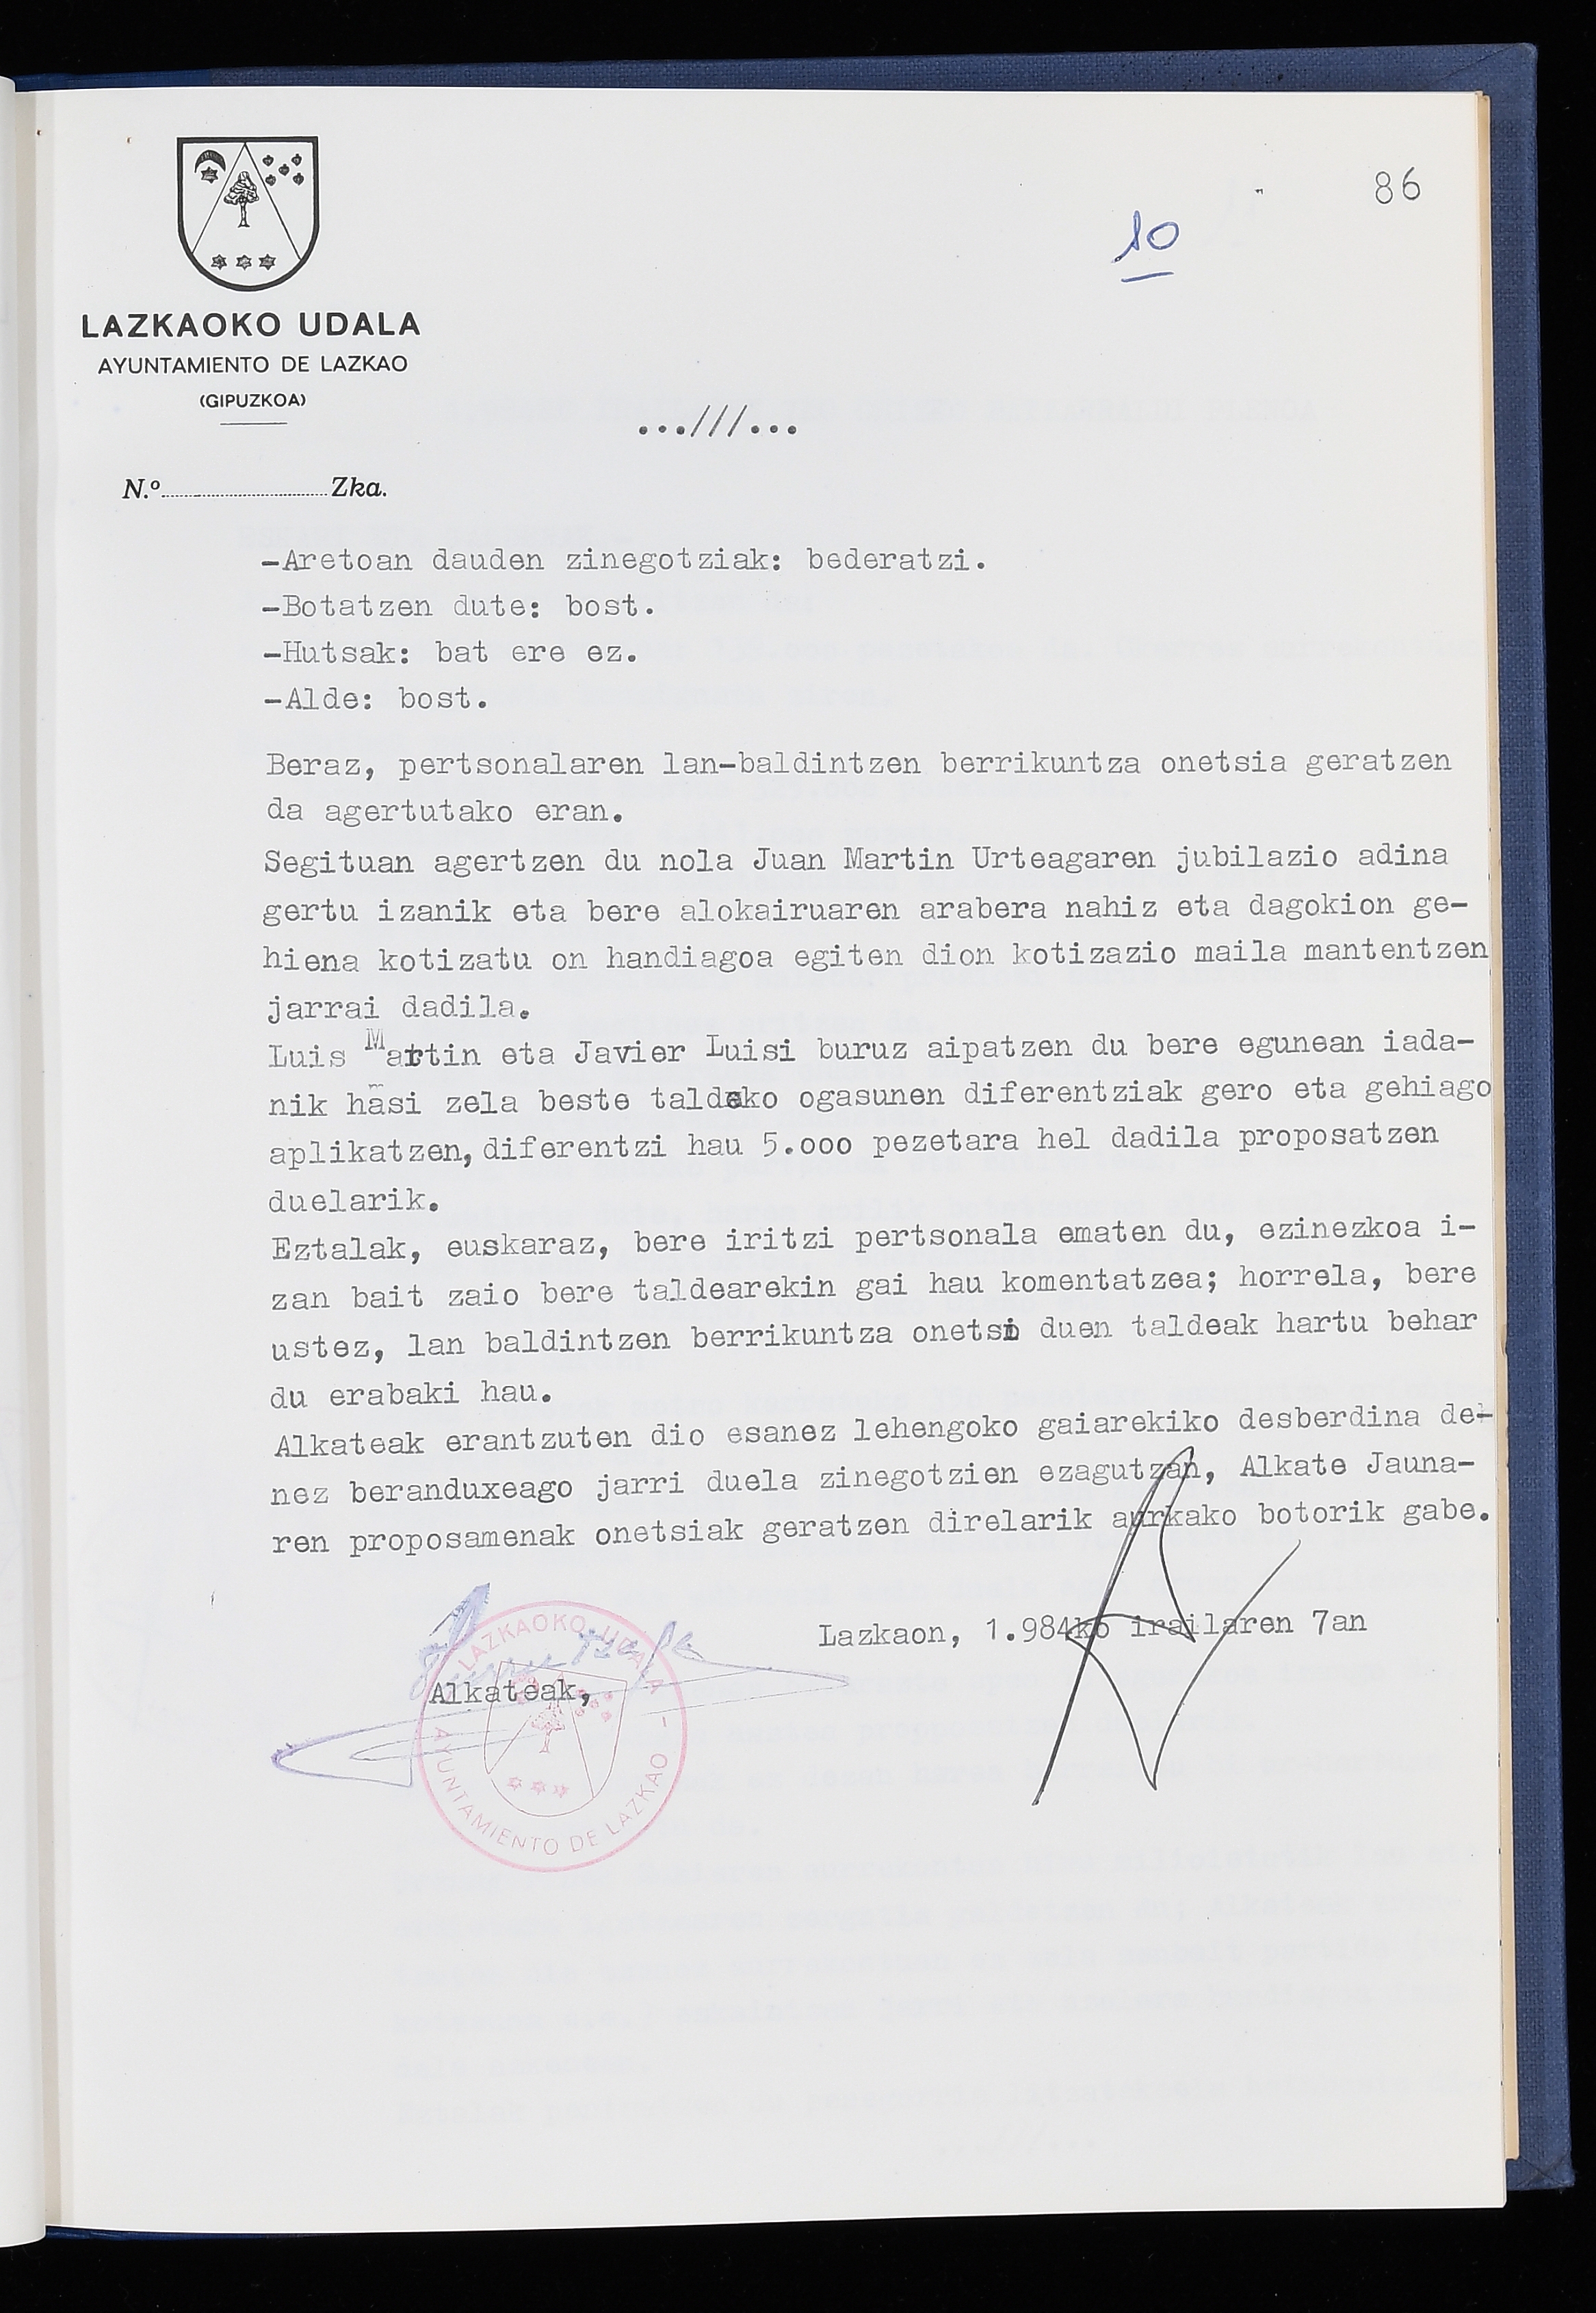 86
10
LAZKAOKO UDALA
AYUNTAMIENTO DE LAZKAO
(GIPUZKOA)
...///...
N.º Zka.
-Aretoan dauden zinegotziak: bederatzi.
-Botatzen dute: bost.
-Hutsak: bat ere ez.
-Alde: bost.
Beraz, pertsonalaren lan-baldintzen berrikuntza onetsia geratzen
da agertutako eran.
Segituan agertzen du nola Juan Martin Urteagaren jubilazio adina
gertu izanik eta bere alokairuaren arabera nahiz eta dagokion ge-
hiena kotizatu on handiagoa egiten dion kotizazio maila mantentzen
jarrai dadila.
Luis Martin eta Javier Luisi buruz aipatzen du bere egunean iada-
nik hasi zela beste taldeko ogasunen diferentziak gero eta gehiago
aplikatzen, diferentzi hau 5.ooo pezetara hel dadila proposatzen
duelarik.
Eztalak, euskaraz, bere iritzi pertsonala ematen du, ezinezkoa i-
zan bait zaio bere taldearekin gai hau komentatzea; horrela, bere
ustez, lan baldintzen berrikuntza onetsi duen taldeak hartu behar
du erabaki hau.
Alkateak erantzuten dio esanez lehengoko gaiarekiko desberdina de-
nez beranduxeago jarri duela zinegotzien ezagutzan, Alkate Jauna-
ren proposamenak onetsiak geratzen direlarik aurkako botorik gabe.
Lazkaon, 1.984ko irailaren 7an
Alkateak,
LAZKAOKO UDALA -
AYUNTAMIENTO DE LAZKAO